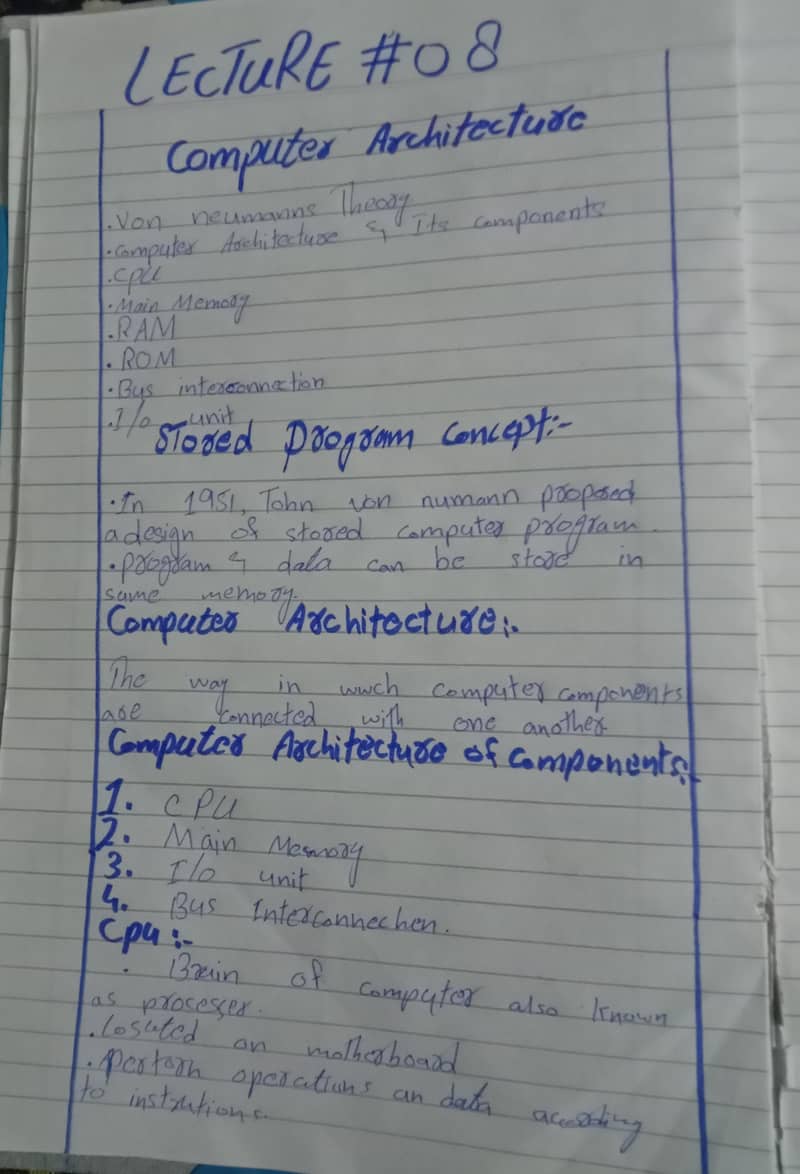 LECTURE #08
Computer Architecture
.Von neumanns Theory
.computer Architecture & Its components
.CPU
.Main Memory
.RAM
.ROM
.Bus interconnection
.I/o unit
Stored program concept:-
.In 1951, John von numann proposed
a design of stored computer program.
.program & data can be store in
same memory.
Computer Architecture:-
The way in wwch computer components
are connected with one another
Computer Architecture of components:
1. CPU
2. Main Memory
3. I/o unit
4. Bus Interconnechen.
Cpu:-
. Brain of computer also known
as processer.
.Losuted on motherboard
.perform operations an data according
to instrutions.